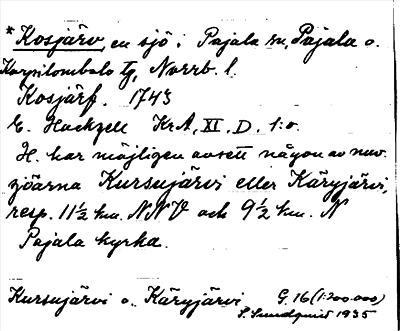 * Kosjärv, en sjö i Pajala sn, Pajala o.
Korpilombolo tg, Norrb. l.
Kosjärf. 1743
E. Hackzell KrA, XI. D. 1:o.
H. har möjligen avsett någon av nuv.
sjöarna Kursujärvi eller Käryjärvi,
resp. 11½ km. NNV och 9½ km. N
Pajala kyrka.
Kursujärvi o. Käryjärvi G. 16 (1:200.000)
S. Sundqvist 1935